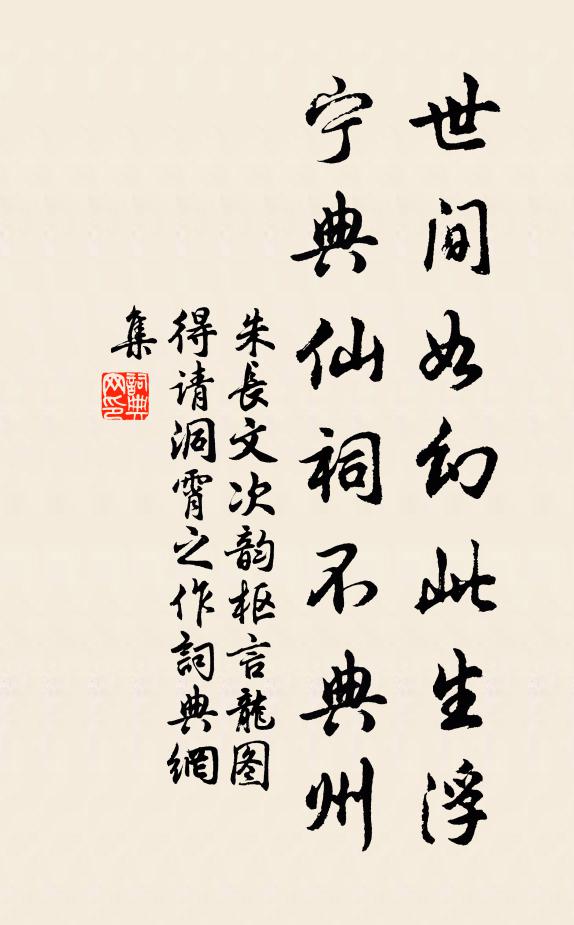 世间如幻此生浮
宁典仙祠不典州
朱長文次韵枢言龍图
得请洞霄之作詞典網
集
詞典
网印